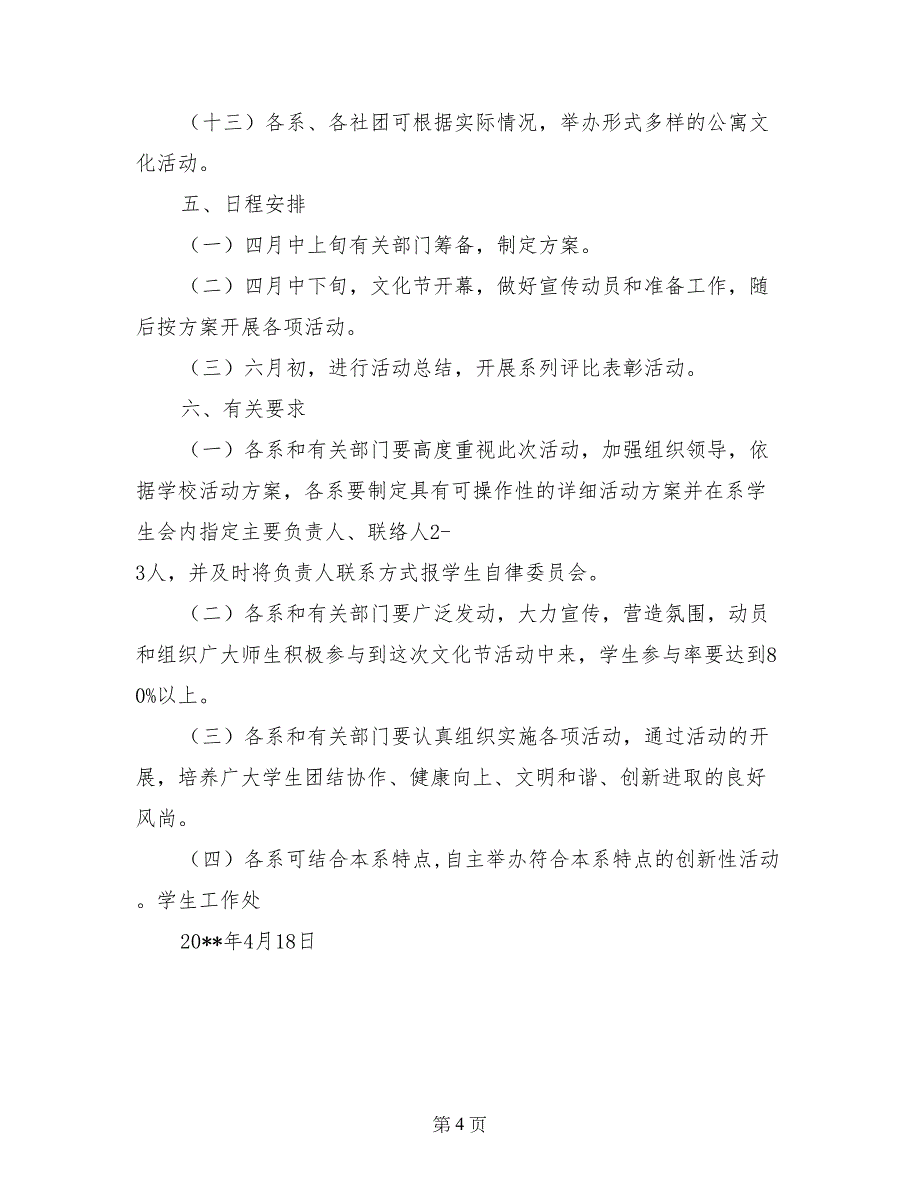 （十三）各系、各社团可根据实际情况，举办形式多样的公寓文
化活动。
五、日程安排
（一）四月中上旬有关部门筹备，制定方案。
（二）四月中下旬，文化节开幕，做好宣传动员和准备工作，随
后按方案开展各项活动。
（三）六月初，进行活动总结，开展系列评比表彰活动。
六、有关要求
（一）各系和有关部门要高度重视此次活动，加强组织领导，依
据学校活动方案，各系要制定具有可操作性的详细活动方案并在系学
生会内指定主要负责人、联络人2-
3人，并及时将负责人联系方式报学生自律委员会。
（二）各系和有关部门要广泛发动，大力宣传，营造氛围，动员
和组织广大师生积极参与到这次文化节活动中来，学生参与率要达到8
0%以上。
（三）各系和有关部门要认真组织实施各项活动，通过活动的开
展，培养广大学生团结协作、健康向上、文明和谐、创新进取的良好
风尚。
（四）各系可结合本系特点,自主举办符合本系特点的创新性活动
。学生工作处
20**年4月18日
第 4 页